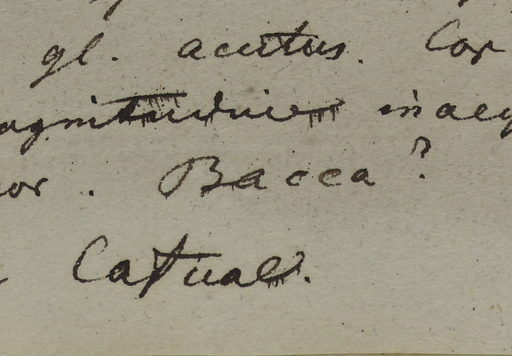 gl. acutus. Cor
agnitudine inaeq
or. Bacca?
Catuae.